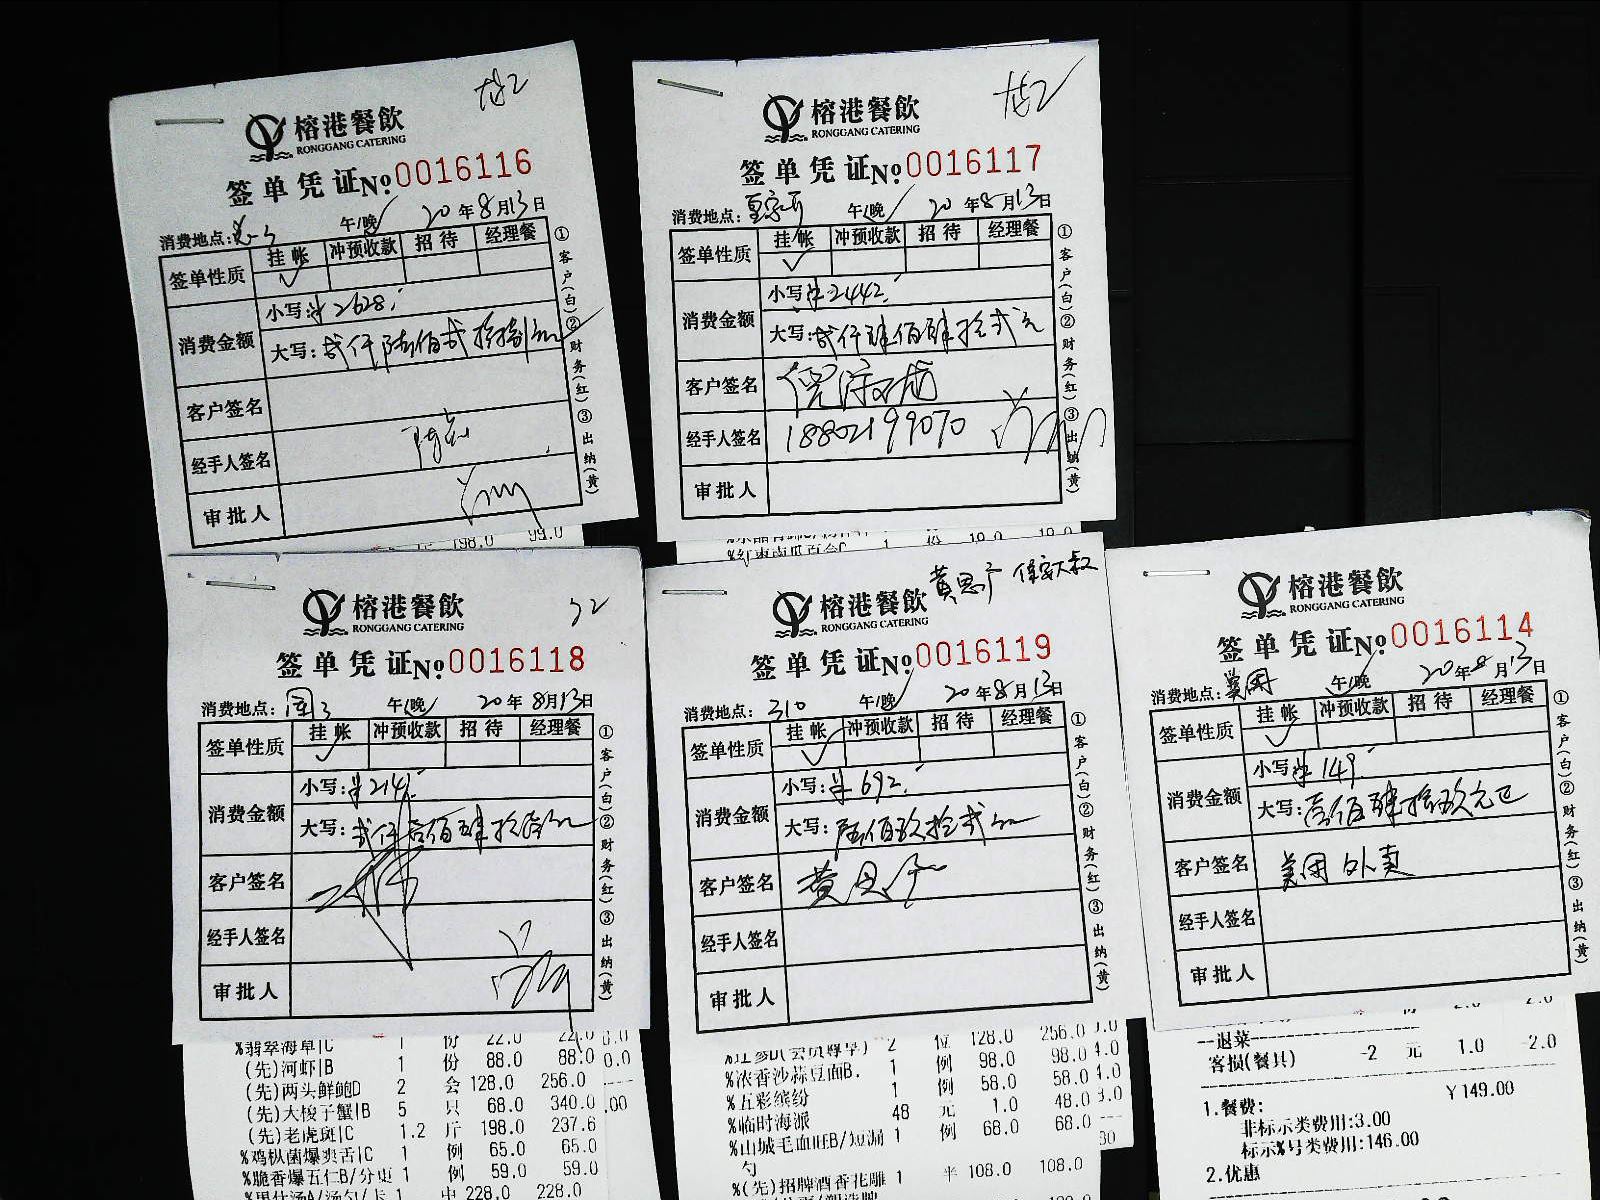 榕港餐飲
RONGGANG CATERING
签单凭证No.0016116
消费地点: 午/晚 20年8月13日
签单性质 挂帐 冲预收款 招待 经理餐
消费金额 小写:¥2628.
大写:贰仟陆佰贰拾捌元
客户签名
经手人签名
审批人
①客户(白)②财务(红)③出纳(黄)
198.0 99.0
榕港餐飲
RONGGANG CATERING
签单凭证No.0016117
消费地点: 午/晚 20年8月13日
签单性质 挂帐 冲预收款 招待 经理餐
消费金额 小写:¥2442.
大写:贰仟肆佰肆拾贰元
客户签名
经手人签名 18802199070
审批人
①客户(白)②财务(红)③出纳(黄)
榕港餐飲
RONGGANG CATERING
签单凭证No.0016118
消费地点: 午/晚 20年8月13日
签单性质 挂帐 冲预收款 招待 经理餐
消费金额 小写:
大写:
客户签名
经手人签名
审批人
①客户(白)②财务(红)③出纳(黄)
%翡翠海草|C 1 份 22.0 22.0
(先)河虾|B 1 份 88.0 88.0
(先)两头鲜鲍D 2 会 128.0 256.0
(先)大梭子蟹|B 5 只 68.0 340.0
(先)老虎斑|C 1.2 斤 198.0 237.6
%鸡枞菌爆爽舌|C 1 例 65.0 65.0
%脆香爆五仁B/分更 1 例 59.0 59.0
1 中 228.0 228.0
黄思广 保安大叔
榕港餐飲
RONGGANG CATERING
签单凭证No.0016119
消费地点: 310 午/晚 20年8月13日
签单性质 挂帐 冲预收款 招待 经理餐
消费金额 小写:¥692.
大写:陆佰玖拾贰元
客户签名 黄思广
经手人签名
审批人
①客户(白)②财务(红)③出纳(黄)
2 位 128.0 256.0
%浓香沙蒜豆面B. 1 例 98.0 98.0
%五彩缤纷 1 例 58.0 58.0
%临时海派 48 元 1.0 48.0
%山城毛血旺B/短漏勺 1 例 68.0 68.0
%(先)招牌酒香花雕 1 半 108.0 108.0
榕港餐飲
RONGGANG CATERING
签单凭证No.0016114
消费地点:美团 午/晚 20年8月13日
签单性质 挂帐 冲预收款 招待 经理餐
消费金额 小写:¥149.
大写:壹佰肆拾玖元正
客户签名 美团外卖
经手人签名
审批人
①客户(白)②财务(红)③出纳(黄)
--退菜--
客损(餐具) -2 元 1.0 -2.0
¥149.00
1.餐费:
非标示类费用:3.00
标示%号类费用:146.00
2.优惠